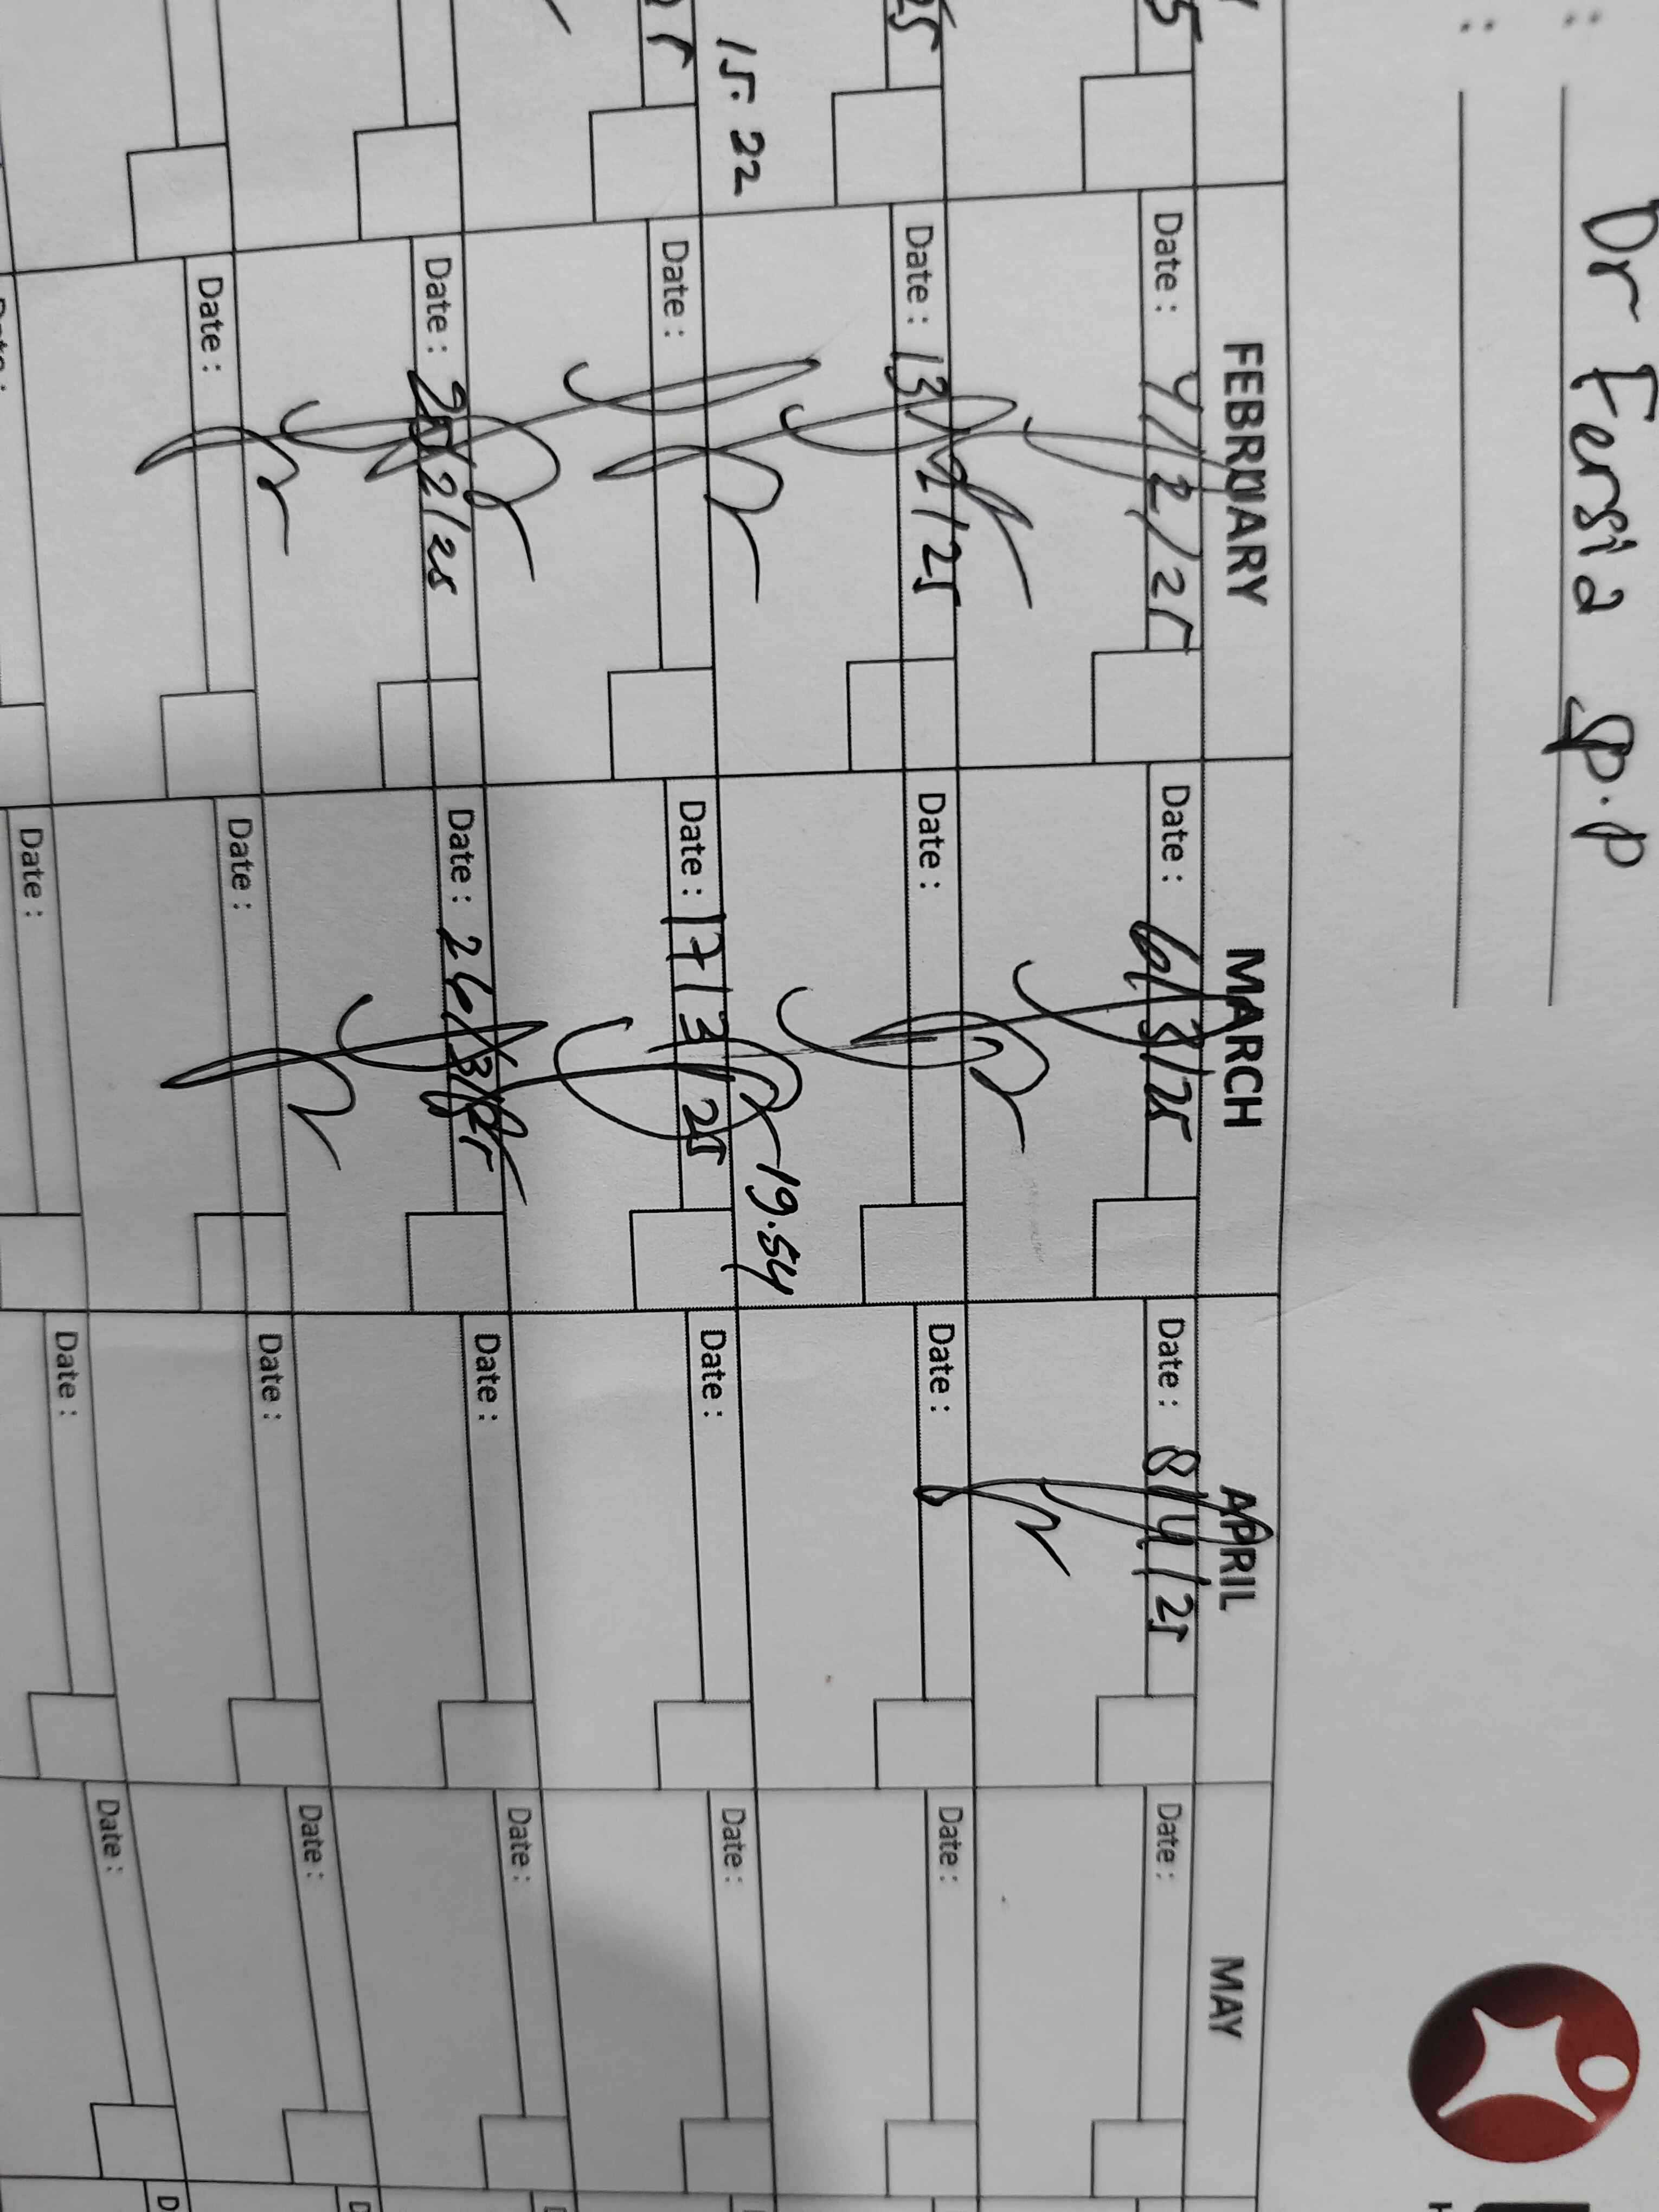 Dr Fersia Sp.P
FEBRUARY MARCH APRIL MAY
Date : 4/2/25 Date : 6/3/25 Date : 8/4/25 Date :
Date : 13/2/25 Date : Date : Date :
15.22 19.54
Date : Date : 17/3/25 Date : Date :
Date : Date : 26/3/25 Date : Date :
Date : Date : Date : Date :
Date : Date : Date :